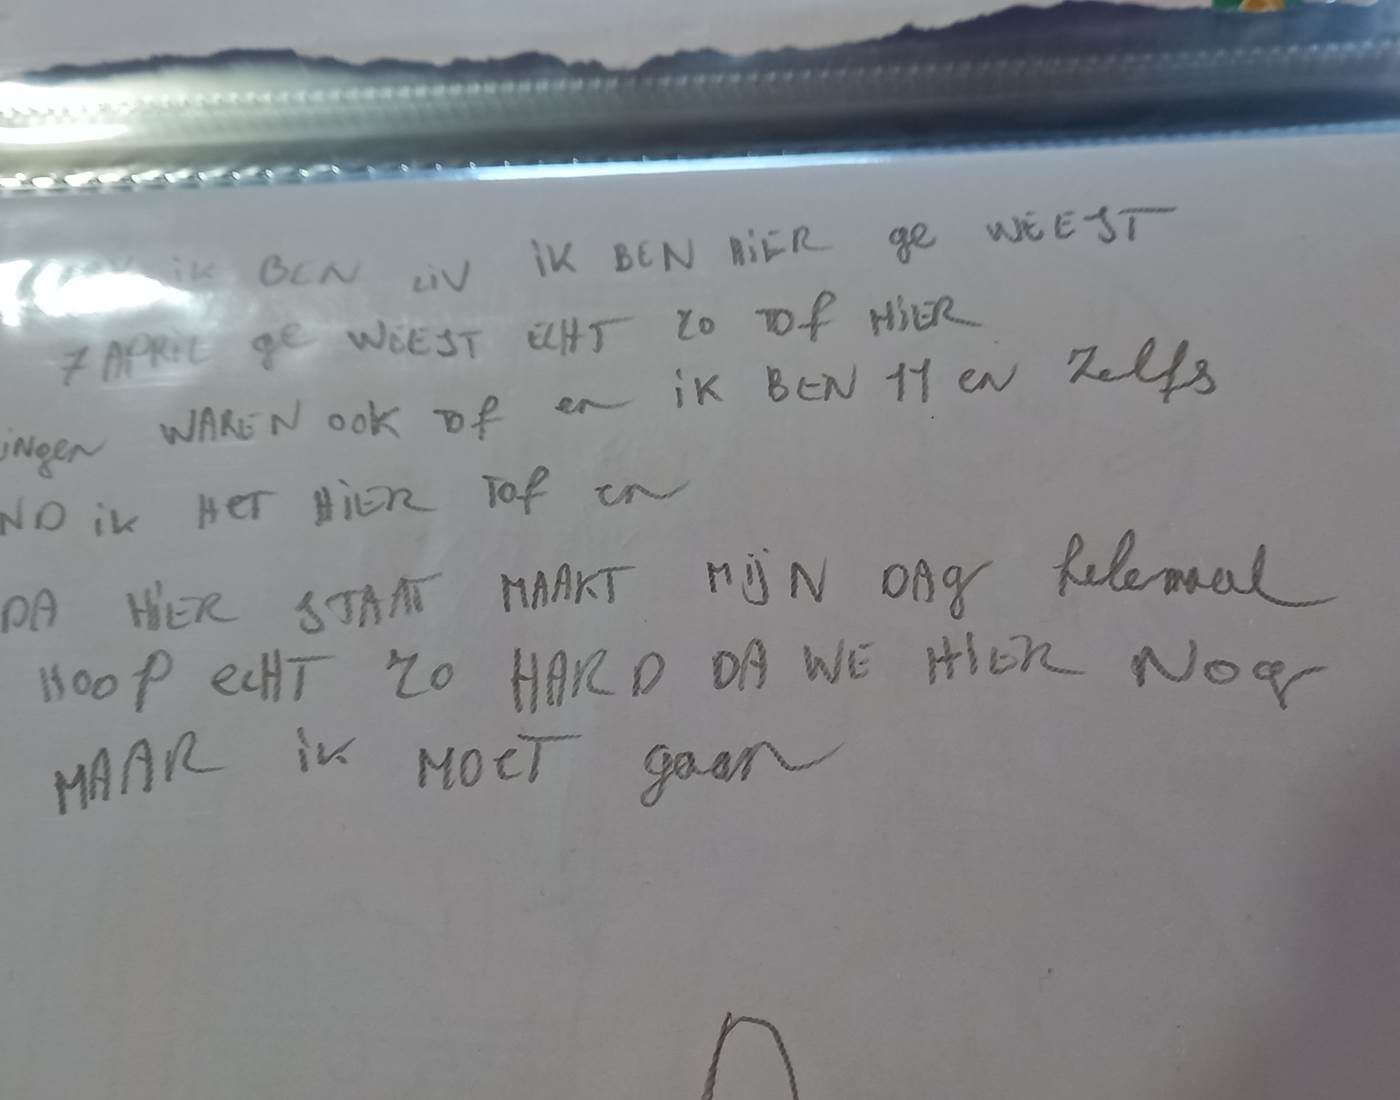 ik BEN LiV iK BEN HiER ge WEEST
7 APRIL ge WEEST ECHT ZO TOf HiER
iNgeN WAREN OOK TOf en iK BEN 11 en Zelfs
ND ik HET HiER Tof en
DA HiER STAAT MAAKT MijN DAg helemaal
HOOP ecHT ZO HARD DA WE HiER Nog
MAAR ik MOET gaan